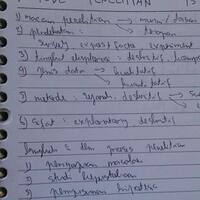 1) macam penelitian → murni / dasar
→ terapan
2) pendekatan :
survey expost facto experiment
3) tingkat eksplanasi : deskriptif,
4) jenis data → kualitatif
kuantitatif
5) metode : sejarah, deskriptif →
6) Sifat : exploratory deskriptif
langkah 2 dlm proses penelitian
1) pengajuan masalah
2) studi kepustakaan
3) penyusunan hipotesa